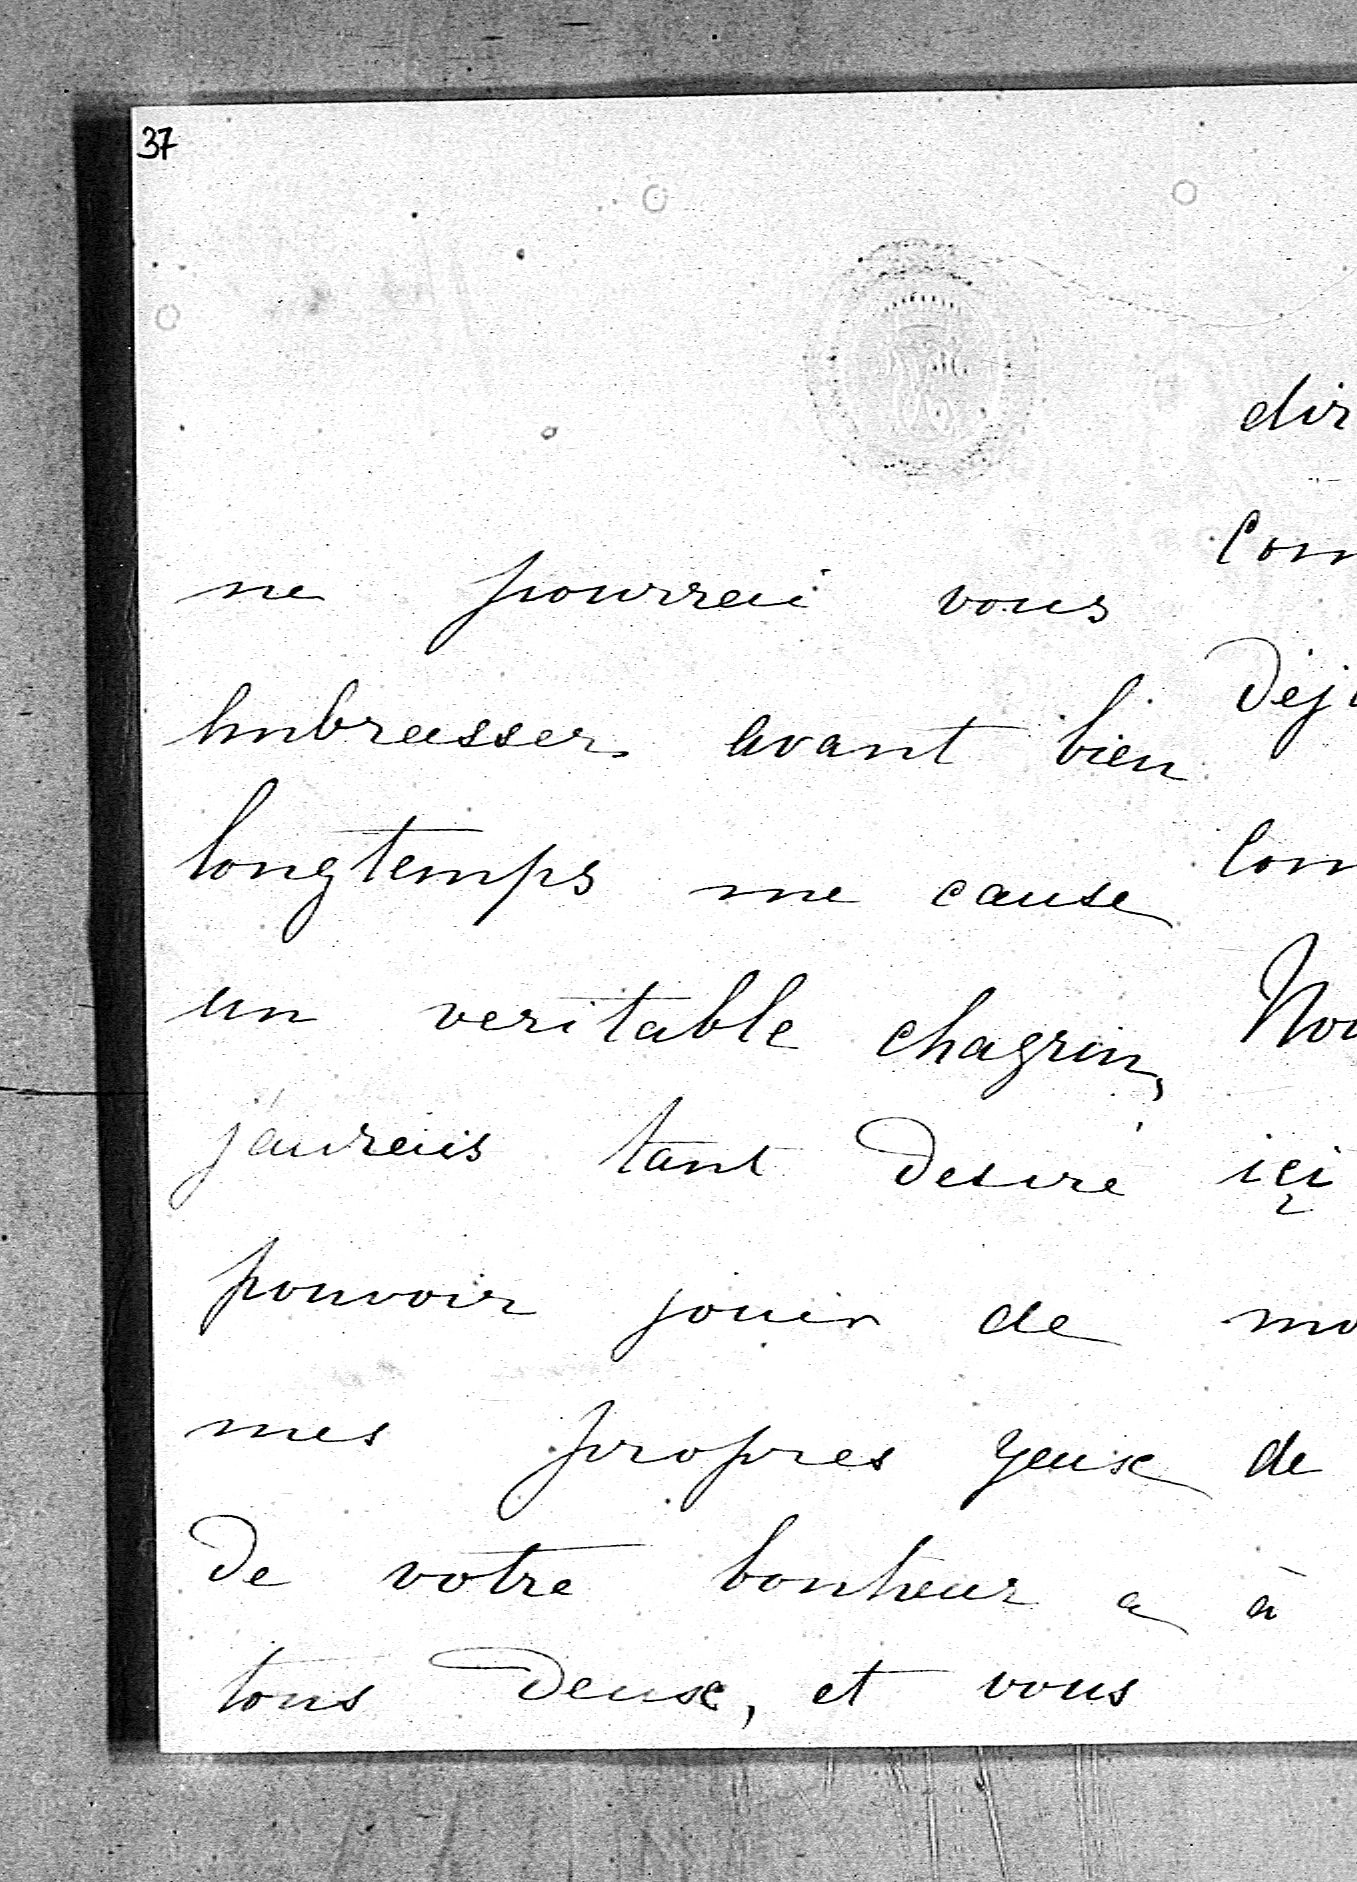 37
ne pourrai vous
embrasser avant bien
longtemps me cause
un veritable chagrin,
j'aurais tant desiré
pouvoir jouir de
mes propres yeux
de votre bonheur a
tous deux, et vous
dir
com
déjà
com
Nou
içi
mo
de
à